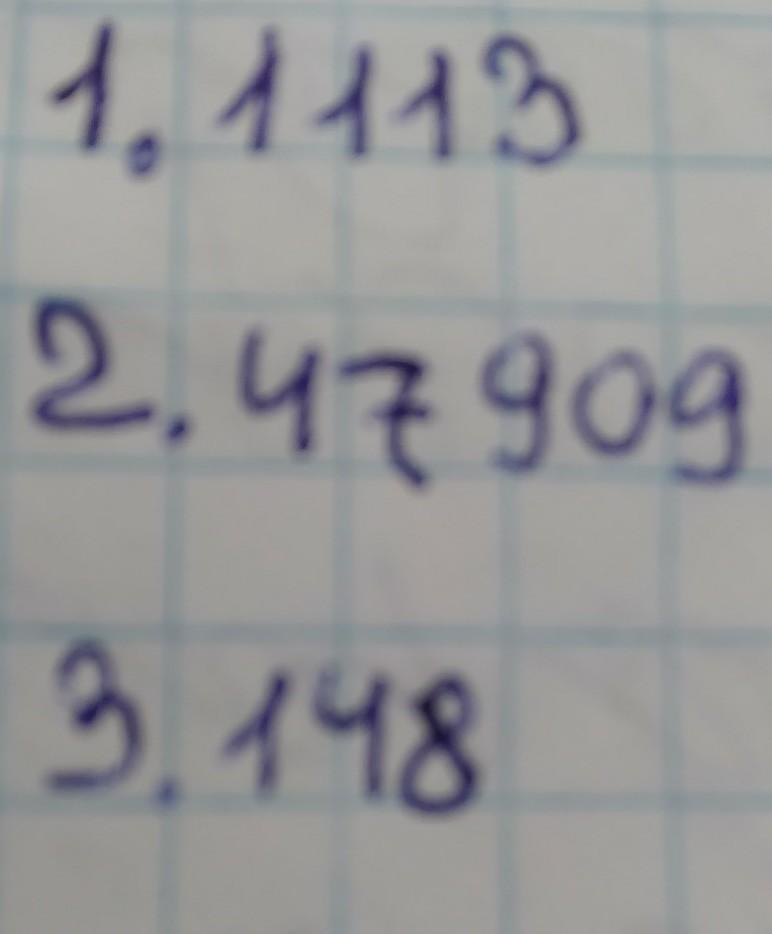 1. 1113
2. 47909
3. 148